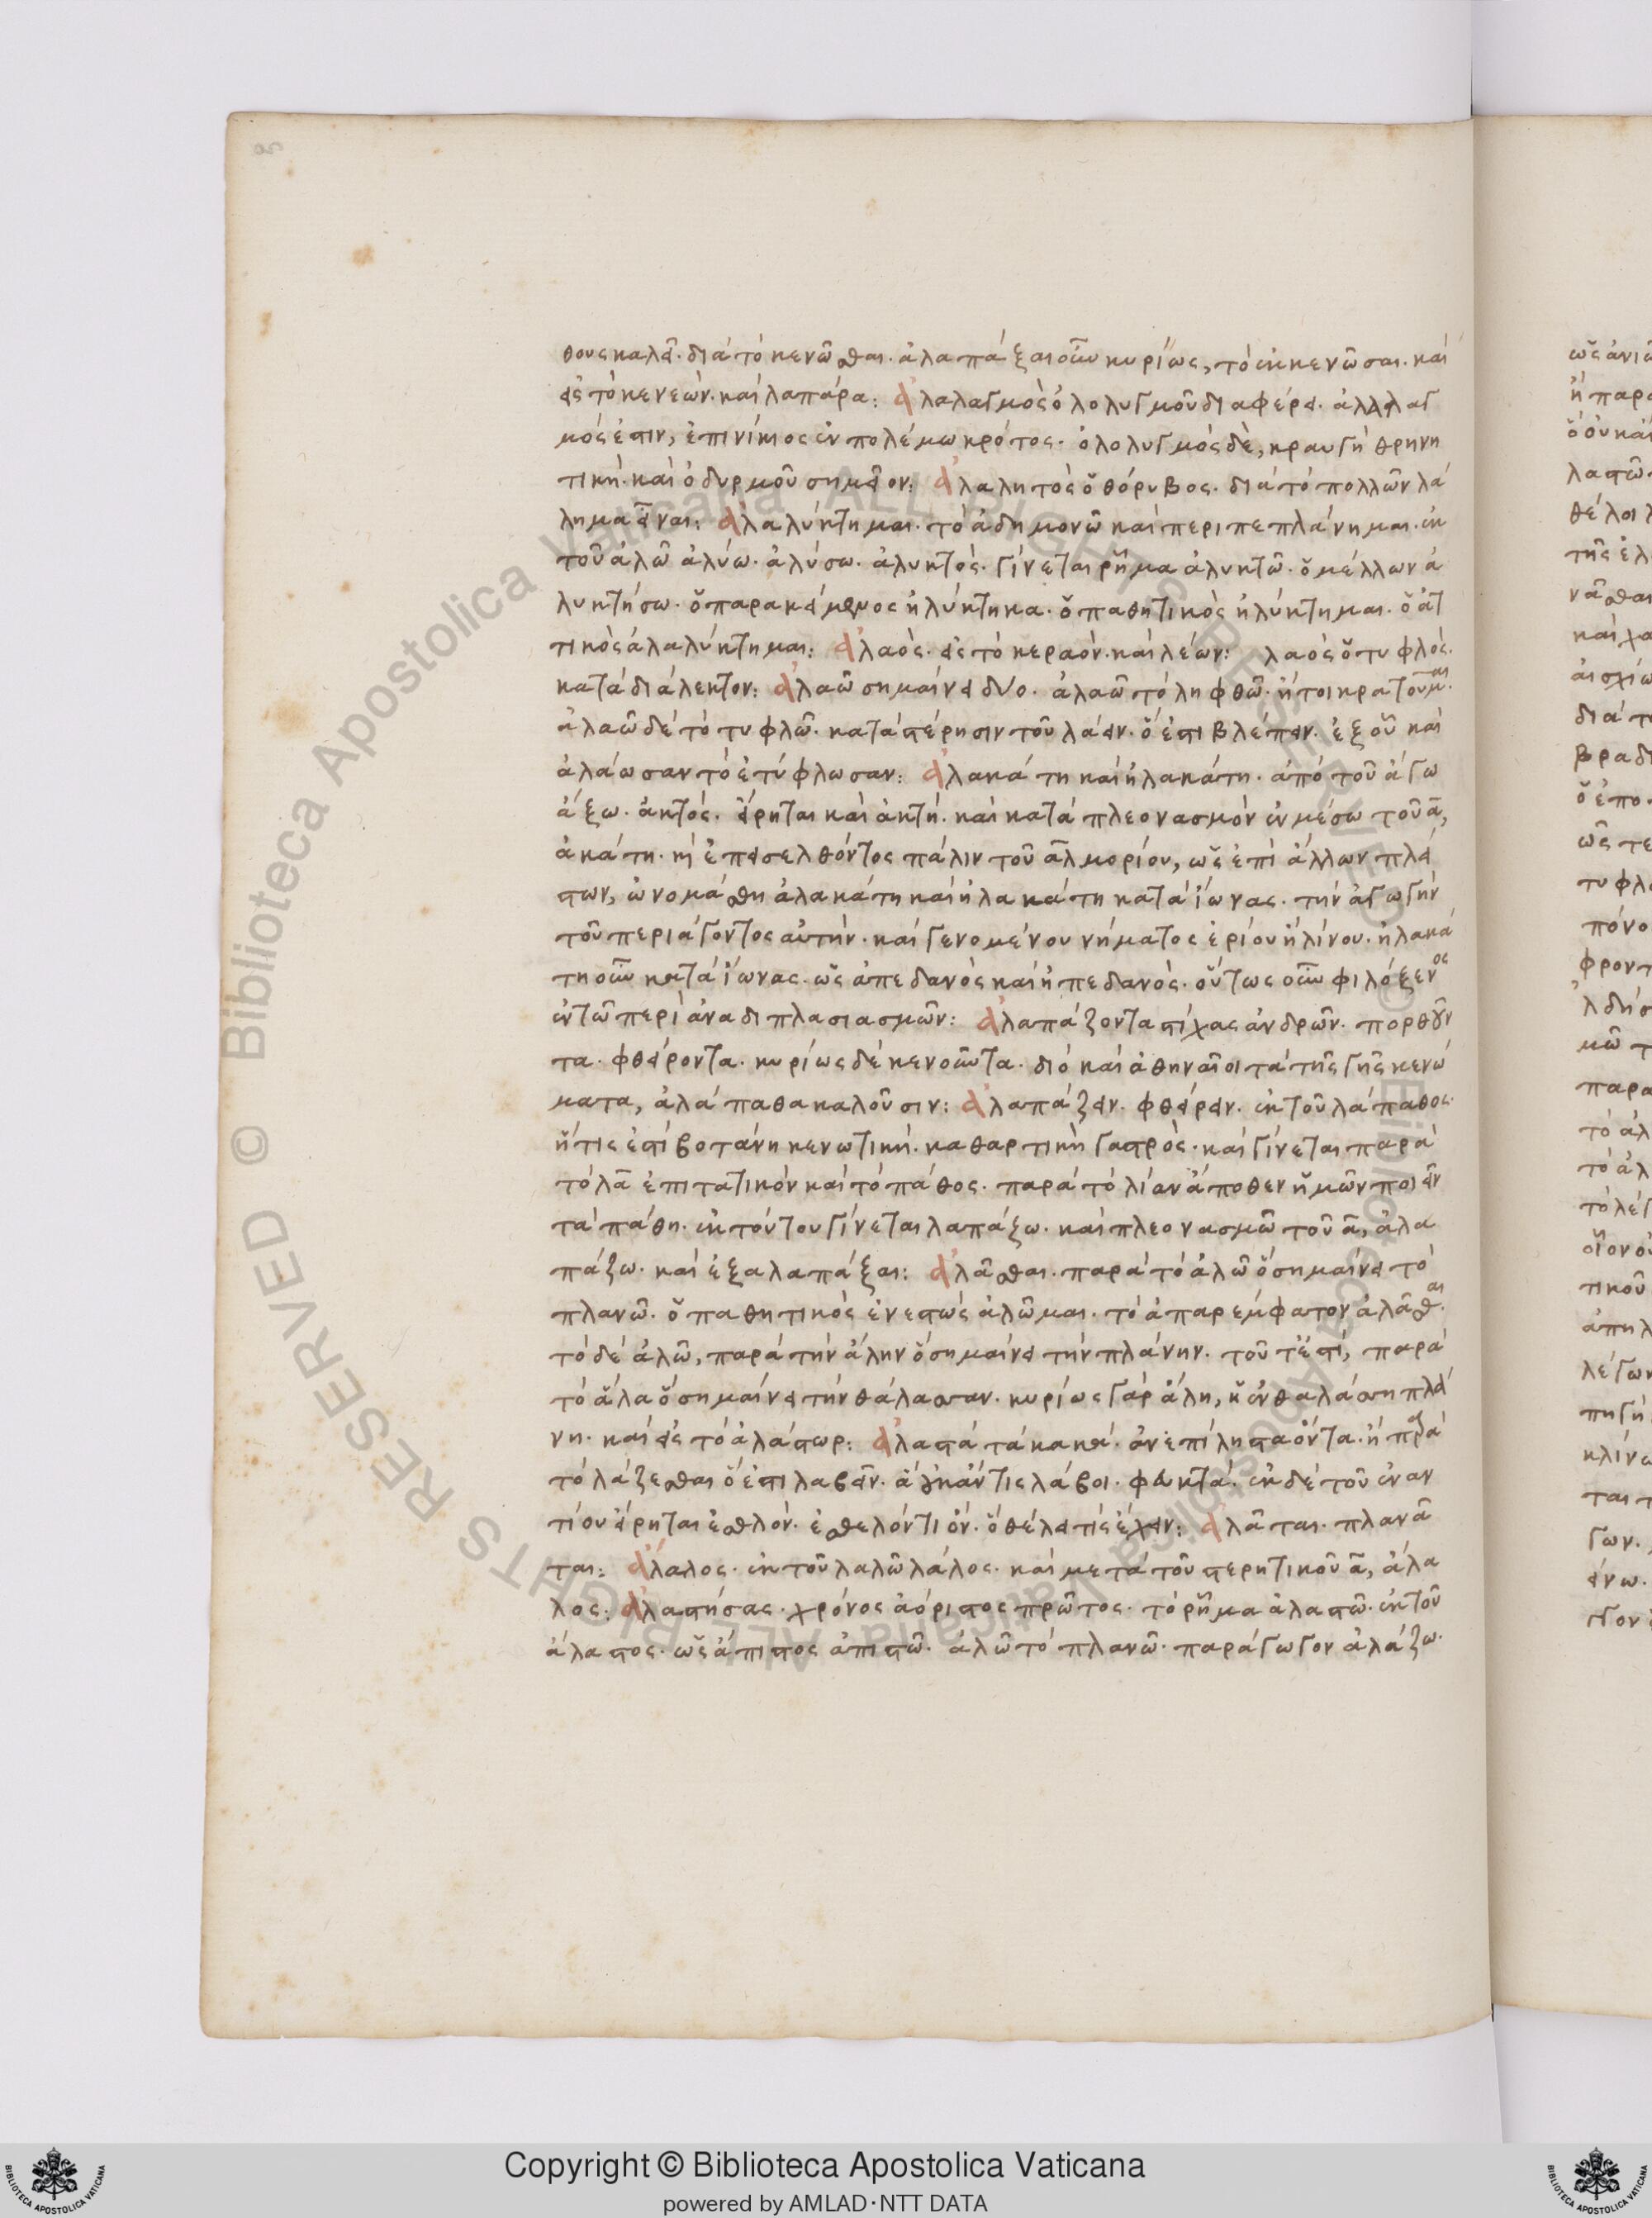 θους καλεῖ· διὰ τὸ κενῶσθαι· ἀλαπάξαι οὖν κυρίως, τὸ ἐκκενῶσαι· καὶ
εἰς τὸ κενεών· καὶ λαπάρα: ἀλαλαγμὸς ὀλολυγμοῦ διαφέρει· ἀλαλαγ
μός ἐστιν, ἐπινίκιος ἐν πολέμω κρότος· ὀλολυγμὸς δὲ, κραυγὴ θρηνη
τικὴ· καὶ ὀδυρμοῦ σημεῖον: ἀλαλητὸς ὁ θόρυβος· διὰ τὸ πολλῶν λά
λημα εἶναι: ἀλαλύκτημαι· τὸ ἀδημονῶ καὶ περιπεπλάνημαι· ἐκ
τοῦ ἀλῶ ἀλύω· ἀλύσω· ἀλυκτὸς· γίνεται ῥῆμα ἀλυκτῶ· ὁ μέλλων ἀ
λυκτήσω· ὁ παρακείμενος ἠλύκτηκα· ὁ παθητικὸς ἠλύκτημαι· ὁ ἀτ
τικὸς ἀλαλύκτημαι: ἀλαὸς· εἰς τὸ κεραὸν· καὶ λέων: λαὸς ὁ τυφλὸς·
κατὰ διάλεκτον: ἀλαῶ σημαίνει δύο· ἀλαῶ τὸ ληφθῶ· ἤτοι κρατοῦμαι·
ἀλαῶ δὲ τὸ τυφλῶ· κατὰ στέρησιν τοῦ λάειν· ὅ ἐστι βλέπειν· ἐξ οὗ καὶ
ἀλάωσαν τὸ ἐτύφλωσαν: ἀλακάτη καὶ ἠλακάτη· ἀπὸ τοῦ ἄγω
ἄξω· ἀκτὸς· εἴρηται καὶ ἀκτή· καὶ κατὰ πλεονασμὸν ἐν μέσω τοῦ α,
ἀκάτη· κἡ ἐπεισελθόντος πάλιν τοῦ αλ μορίου, ὡς ἐπὶ ἄλλων πλεί
στων, ὠνομάσθη ἀλακάτη καὶ ἠλακάτη κατὰ ἴωνας· τὴν ἀγωγὴν
τοῦ περιάγοντος αὐτὴν· καὶ γενομένου νήματος ἐρίου ἢ λίνου· ἠλακά
τη οὖν κατὰ ἴωνας· ὡς ἀπεδανὸς καὶ ἠπεδανὸς· οὕτως οὖν φιλόξενος
ἐν τῶ περὶ ἀναδιπλασιασμῶν: ἀλαπάζοντα στίχας ἀνδρῶν· πορθοῦν
τα· φθείροντα· κυρίως δὲ κενοῦντα· διὸ καὶ ἀθηναῖοι τὰ τῆς γῆς κενώ
ματα, ἀλάπαθα καλοῦσιν: ἀλαπάζειν· φθείρειν· ἐκ τοῦ λάπαθος·
ἥτις ἐστὶ βοτάνη κενωτικὴ· καθαρτικὴ γαστρὸς· καὶ γίνεται παρὰ
τὸ λα ἐπιτατικὸν καὶ τὸ πάθος· παρὰ τὸ λίαν ἄποθεν ἡμῶν ποιεῖν
τὰ πάθη· ἐκ τούτου γίνεται λαπάζω· καὶ πλεονασμῶ τοῦ α, ἀλα
πάζω· καὶ ἐξαλαπάξαι: ἀλᾶσθαι· παρὰ τὸ ἀλῶ ὃ σημαίνει τὸ
πλανῶ· ὁ παθητικὸς ἐνεστὼς ἀλῶμαι· τὸ ἀπαρέμφατον ἀλᾶσθαι·
τὸ δὲ ἀλῶ, παρὰ τὴν ἄλην ὃ σημαίνει τὴν πλάνην· τοῦτέστι, παρὰ
τὸ ἅλα ὃ σημαίνει τὴν θάλασσαν· κυρίως γὰρ ἄλη, ἡ ἐν θαλάσση πλά
νη· καὶ εἰς τὸ ἀλάστωρ: ἀλαστὰ τὰ κακά· ἀνεπίληστα ὄντα· ἢ παρὰ
τὸ λάζεσθαι ὅ ἐστι λαβεῖν· ἃ οὐκ ἄν τις λάβοι· φευκτά· ἐκ δὲ τοῦ ἐναν
τίου εἴρηται ἐσθλὸν· ἐσθελόν τι ὂν· ὃ θέλει τίς ἔχειν: ἀλᾶται· πλανᾶ
ται: ἄλαλος· ἐκ τοῦ λαλῶ λάλος· καὶ μετὰ τοῦ στερητικοῦ α, ἄλα
λος: ἀλαστήσας· χρόνος ἀόριστος πρῶτος· τὸ ῥῆμα ἀλαστῶ· ἐκ τοῦ
ἄλαστος· ὡς ἄπιστος ἀπιστῶ· ἀλῶ τὸ πλανῶ· παράγωγον ἀλάζω·
Copyright © Biblioteca Apostolica Vaticana
powered by AMLAD·NTT DATA